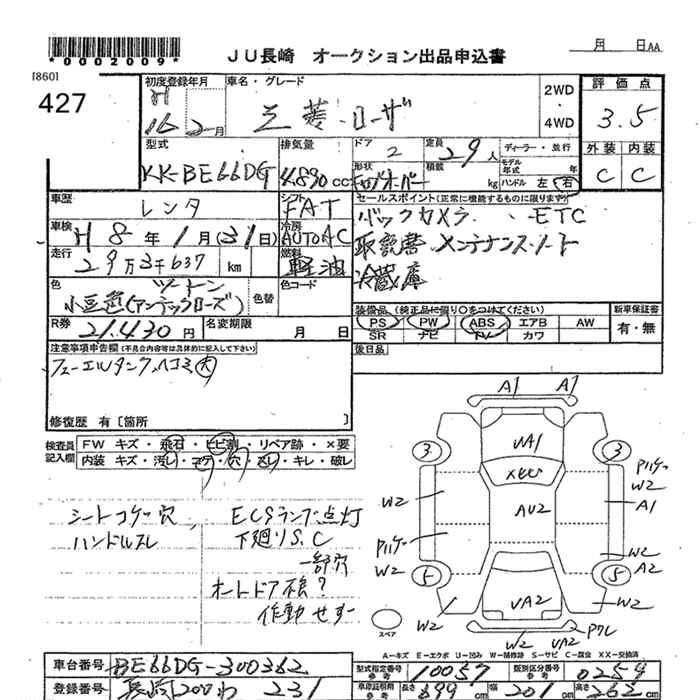 *0002009*
JU長崎 オークション出品申込書
月 日AA
[860]
427
初度登録年月
車名・グレード
H
16 2月
三菱 ローザ
2WD
・
4WD
評価点
3.5
外装 内装
C C
型式
KK-BE66DG
排気量
4890 cc
ドア
2
定員
29人
ディーラー・並行
形状
積載
kg
モデル年式 年
ハンドル 左 右
車歴
レンタ
シフト
FAT
セールスポイント(正常に機能するものに限ります)
バックカメラ、ETC
取説書 メンテナンスノート
冷蔵庫
車検
H 8年 1月(31日)
冷房
AUTO AC
走行
29万3千637 km
燃料
軽油
色
ツートン
小豆色(アンティックローズ)
色替
色コード
R券
21,430円
名変期限
月 日
装備品 (純正品に限り○をつけてください)
PS PW ABS エアB AW
SR ナビ TV カワ
新車保証書
有・無
後日品
注意事項申告欄(不具合内容等は具体的に記入して下さい)
フューエルタンクヘコミ大
修復歴 有[箇所 ]
検査員記入欄
FW キズ・飛石・ヒビ割・リペア跡・×要
内装 キズ・汚レ・コゲ・穴・スレ・キレ・破レ
シートコゲ穴
ハンドルスレ
ECSランプ点灯
下廻りS.C
一部穴
オートドア根?
作動せず
A1 A1
3 3
UA1
XCC
AU2
UA2
W2
Pハゲ
W2
Pハゲ
W2
A1
W2
A2
5 5
W2
W2
W2 UA2
Pワレ
スペア
A-キズ E-エクボ U-凹み W-補修跡 S-サビ C-腐食 XX-交換済
車台番号
BE66DG-300362
型式指定番号
参考
10057
類別区分番号
参考
0254
登録番号
長崎200わ 231
車庫証明用
参考
長さ 699 cm
幅 201 cm
高さ 262 cm